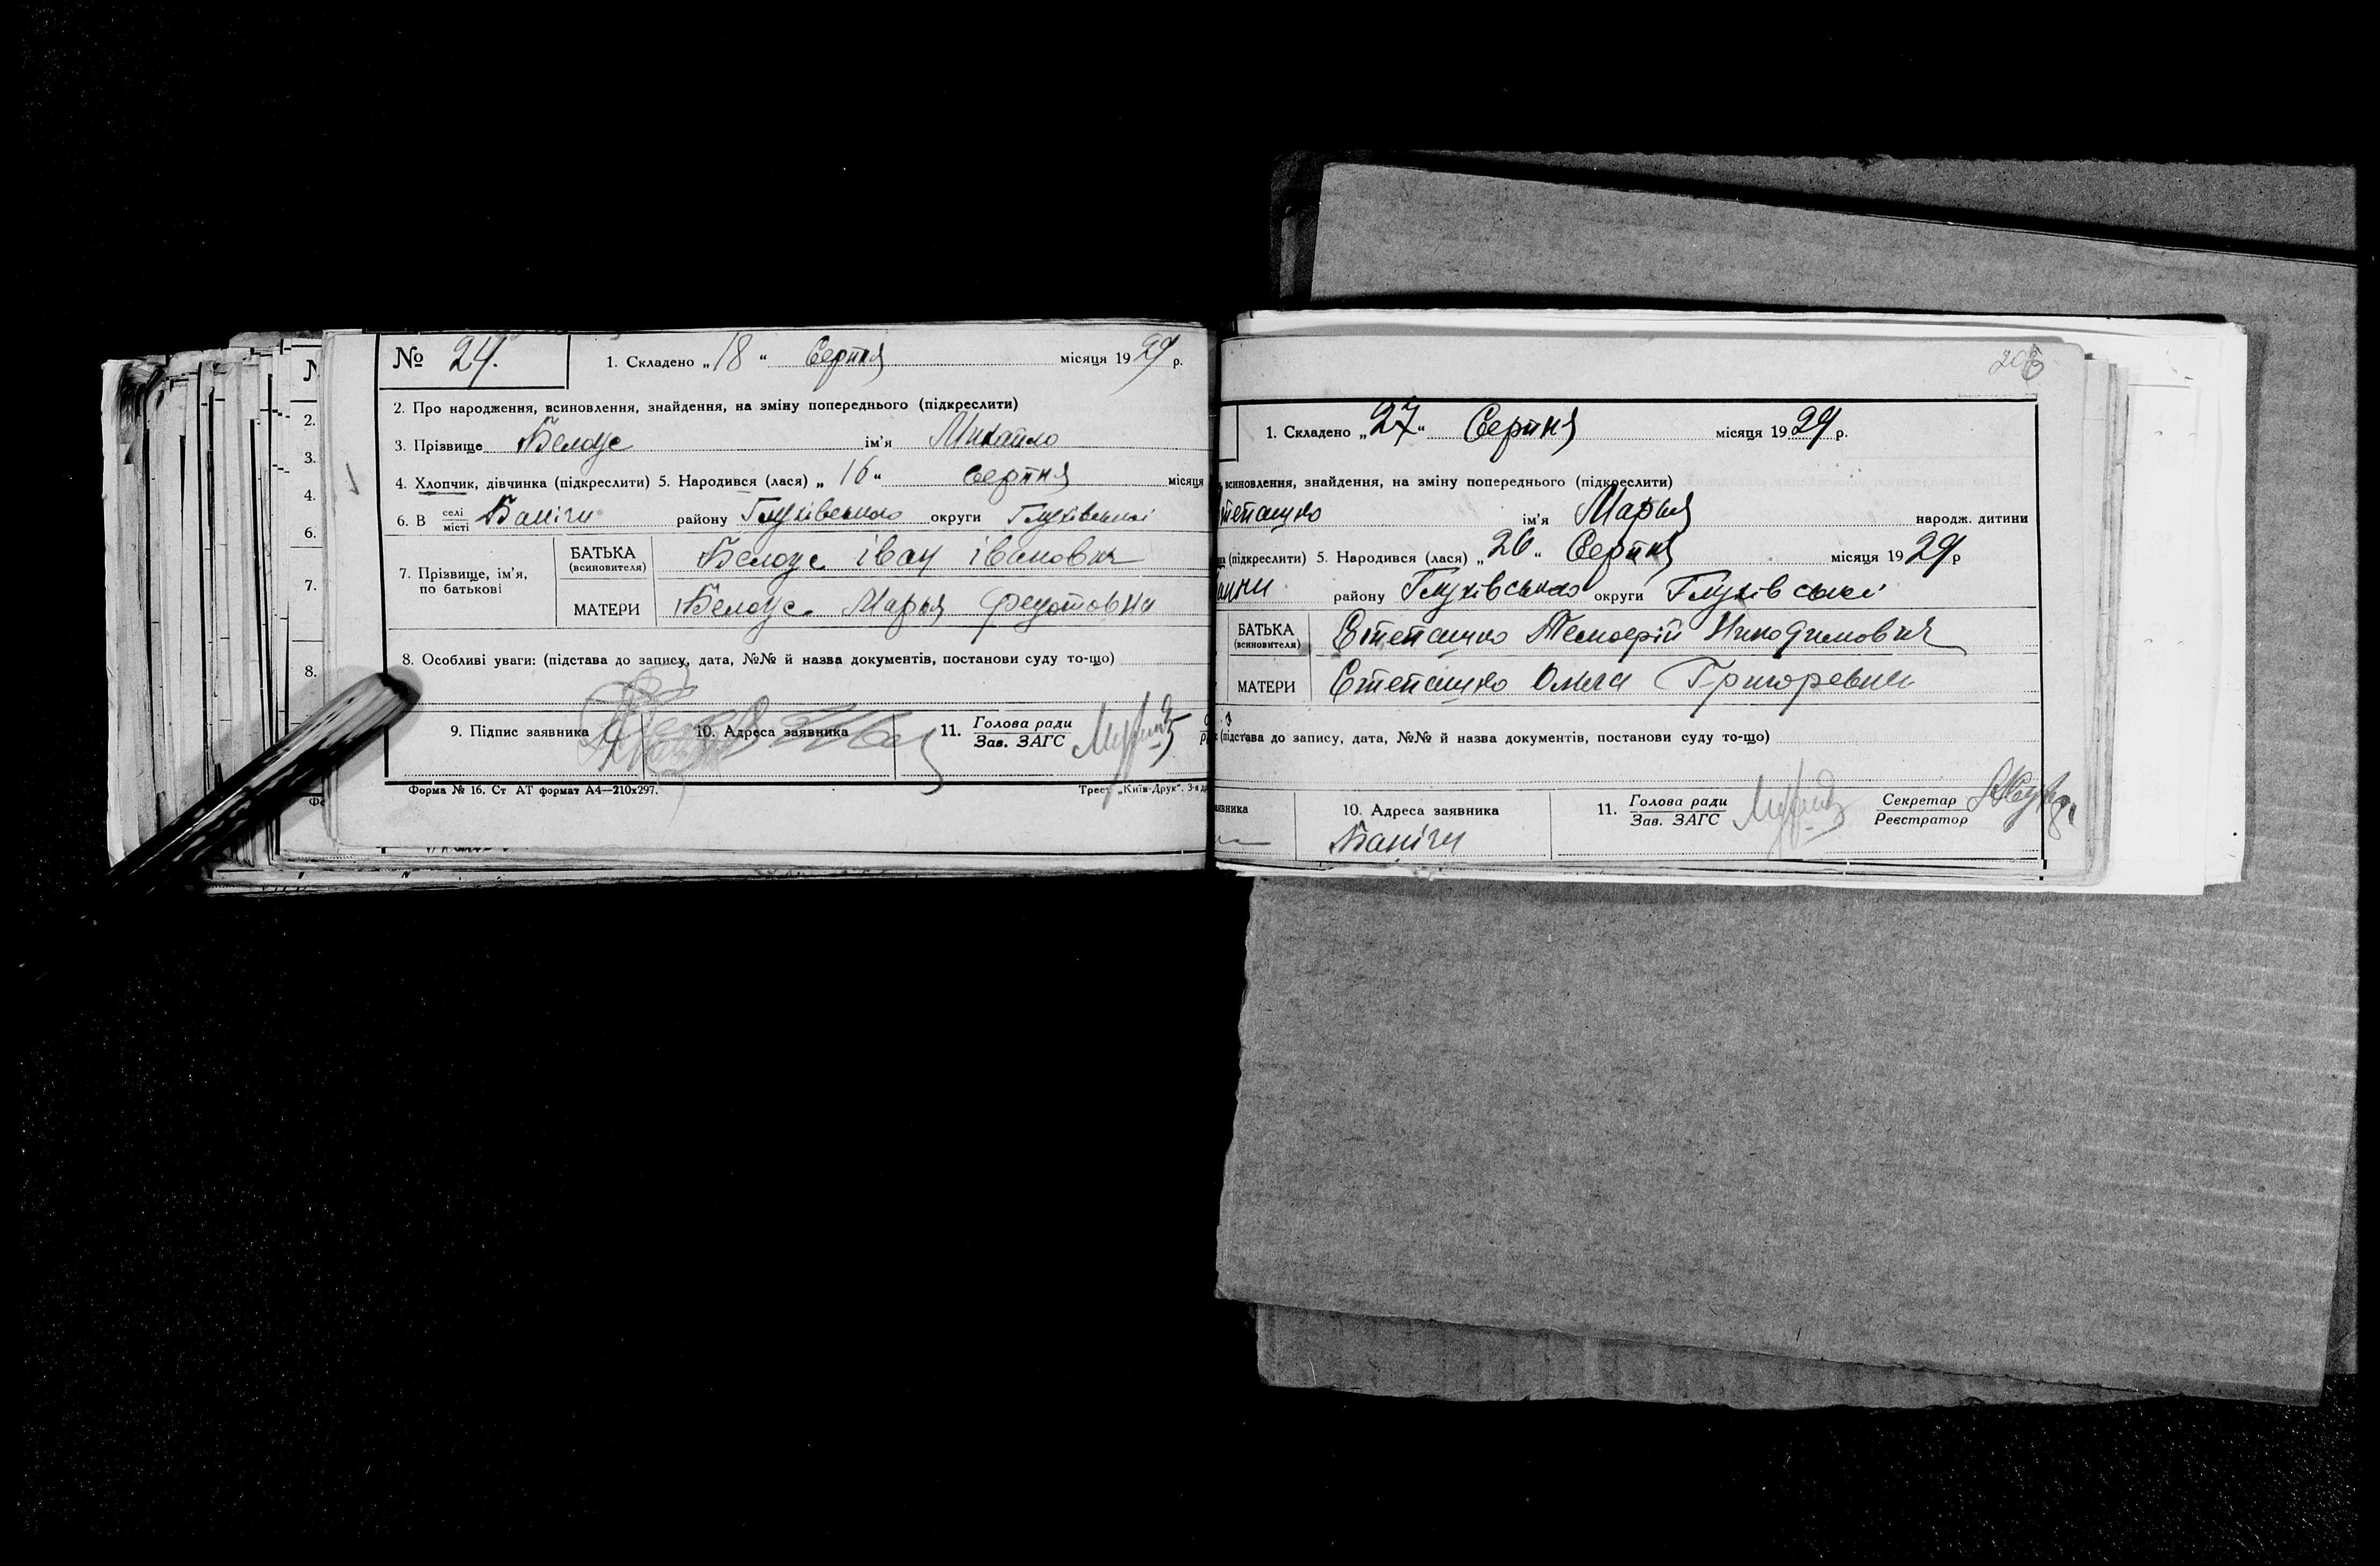 № 24. 1. Складено „18“ Серпня місяця 1929 р.
2. Про народження, всиновлення, знайдення, на зміну попереднього (підкреслити)
3. Прізвище Белоус ім'я Михайло
4. Хлопчик, дівчинка (підкреслити) 5. Народився (лася) „16“ серпня місяця
6. В селі місті Банічи району Глухівського округи Глухівської
7. Прізвище, ім'я, по батькові
БАТЬКА (всиновителя) Белоус Іван Іванович
МАТЕРИ Белоус Марья Федотовна
8. Особливі уваги: (підстава до запису, дата, №№ й назва документів, постанови суду то-що)
9. Підпис заявника 10. Адреса заявника 11. Голова ради Зав. ЗАГС
Форма № 16. Ст АТ формат А4—210х297. Трест „Київ-Друк“. 3-я
2.
3.
4.
6.
7.
8.
1. Складено „27“ Серпня місяця 1929 р.
всиновлення, знайдення, на зміну попереднього (підкреслити)
тепащко ім'я Марья народж. дитини
(підкреслити) 5. Народився (лася) „26“ Серпня місяця 1929 р
району Глухівського округи Глухівської
БАТЬКА (всиновителя) Степащко Никодимович
МАТЕРИ Степащко Ольга Григоревна
(підстава до запису, дата, №№ й назва документів, постанови суду то-що)
10. Адреса заявника 11. Голова ради Зав. ЗАГС Секретар Реєстратор
Банічи